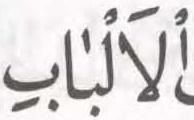 اْلاَلْبَابِ